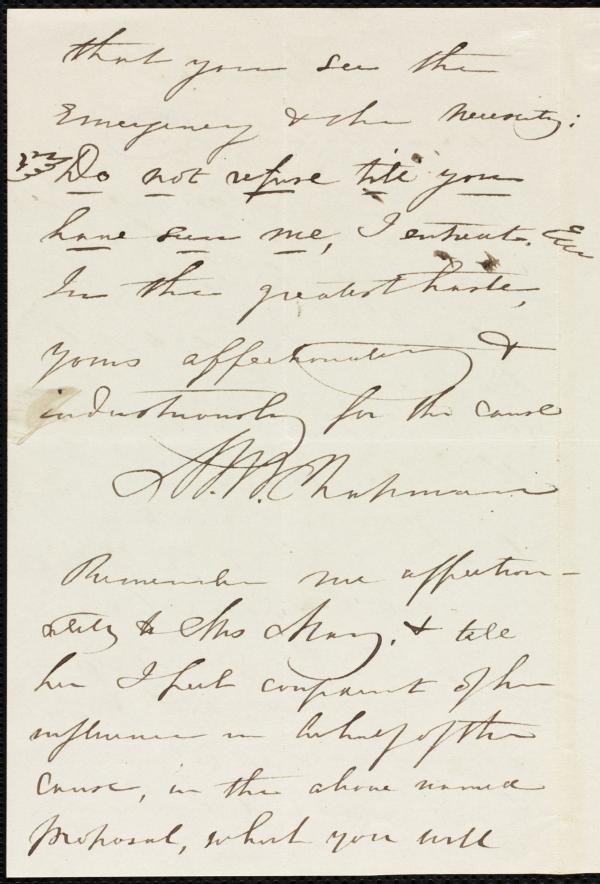 that you see the
Emergency & the necessity:
Do not refuse till you
have seen me, I entreat.
In the greatest haste,
yours affectionately &
industriously for the cause
M. W. Chapman
Remember me affection-
ately to Mrs May. & tell
her I feel confident of her
influence in behalf of the
cause, in the above named
proposal, which you will